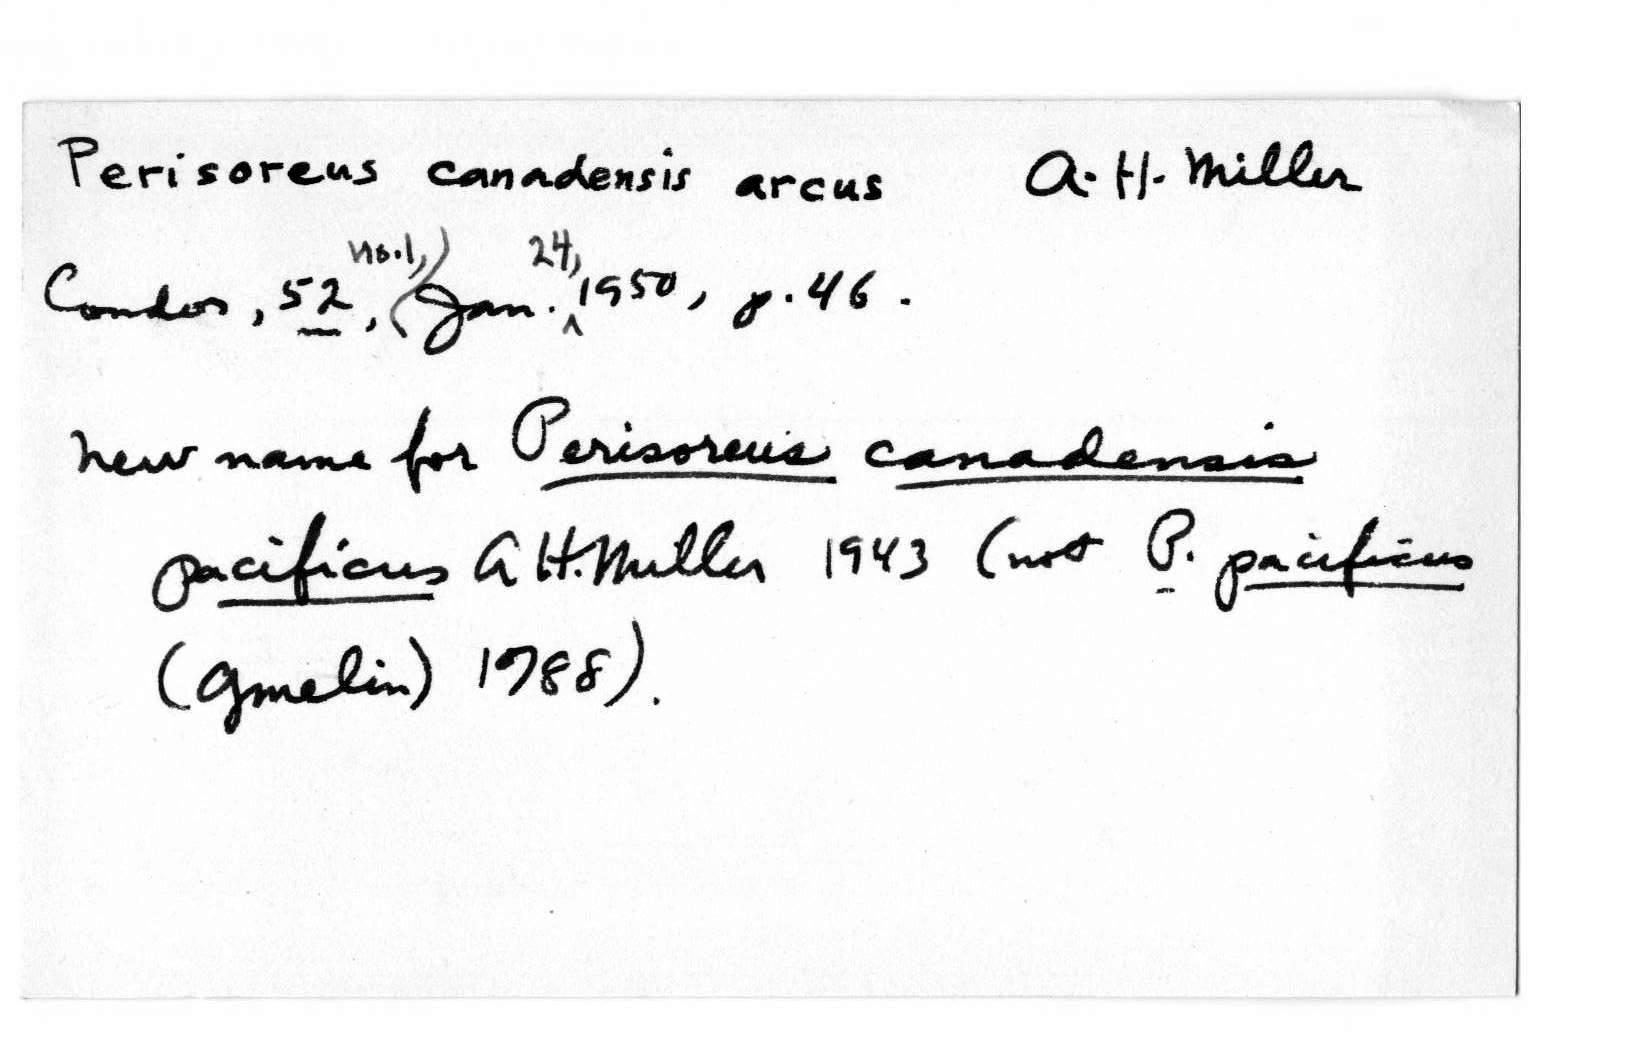 Perisoreus canadensis arcus A. H. Miller
Condor, 52, no. 1, (Jan. 24, 1950, p. 46.
new name for Perisoreus canadensis
pacificus A H. Miller 1943 (not P. pacificus
(Gmelin) 1788).